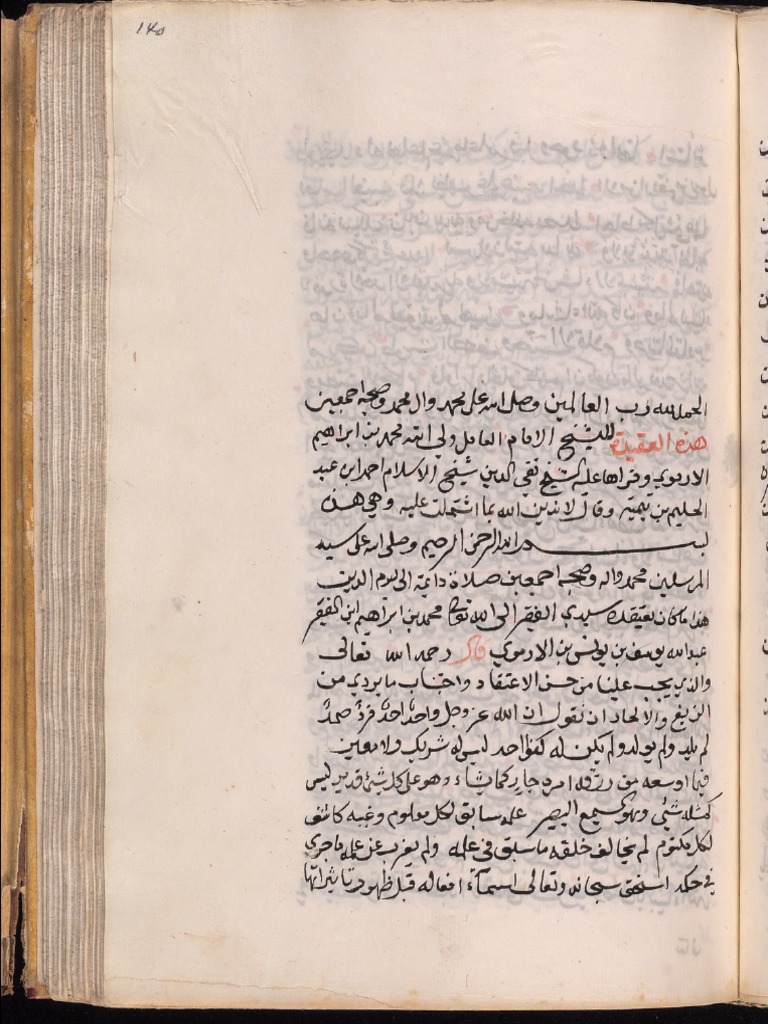 ١٤٥
الحمد لله رب العالمين وصلى الله على محمد وال محمد وصحبه اجمعين
هذه العقيدة للشيخ الامام العامل ولي الله محمد بن ابراهيم
الارموي وقراها عليه الشيخ تقي الدين شيخ الاسلام احمد ابن عبد
الحليم بن تيمية وقال لاندين الله بما اشتملت عليه وهي هذه
بسم الله الرحمن الرحيم وصلى الله على سيد
المرسلين محمد واله وصحبه اجمعين صلاة دايمة الى يوم الدين
هذا ما كان يعتقده سيدي الفقير الى الله تعالى محمد بن ابراهيم ابن الفقير
عبد الله يوسف بن يونس بن الارموي قال رحمه الله تعالى
والذي يجب علينا من حسن الاعتقاد واجتناب ما يردي من
الزيغ والالحاد ان نقول ان الله عز وجل واحد احد فرد صمد
لم يلد ولم يولد ولم يكن له كفوا احد ليس له شريك ولا معين
فيما اوسعه من رزقه امره جار كما يشاء وهو على كل شيء قدير ليس
كمثله شيء وهو السميع البصير علمه سابق لكل معلوم وغيبه كاشف
لكل مكتوم لم يخالف خلقه ما سبق في علمه ولم يعزب عن علمه ما جرى
في حكمه استحق سبحانه وتعالى اسماء افعاله قبل ظهور تاثيراتها